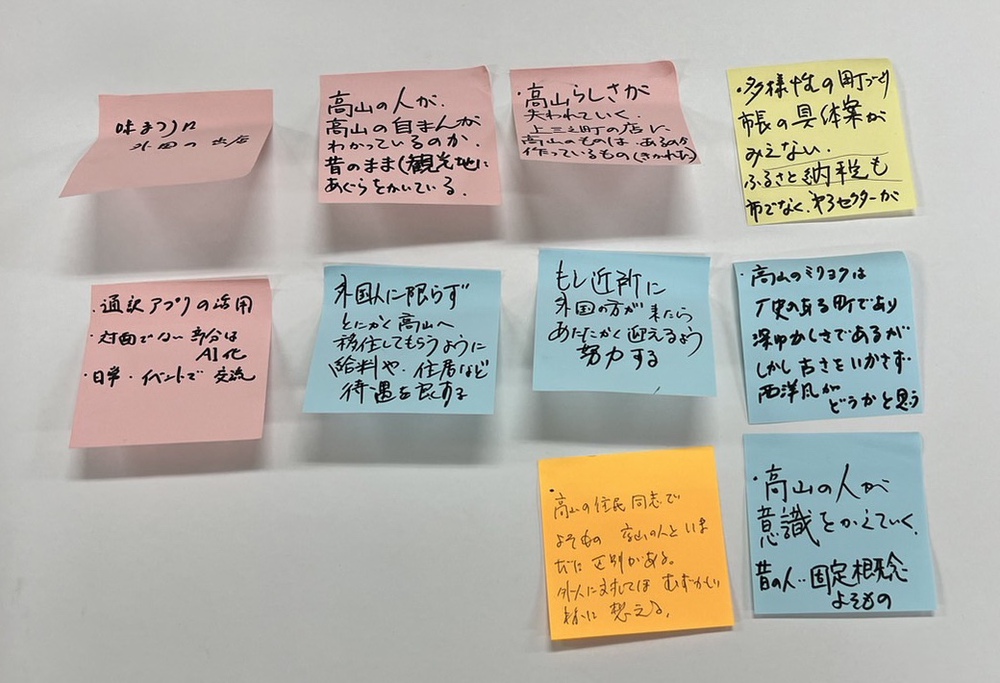 味まつりに
外国の出店
高山の人が、
高山の自まんが
わかっているのか、
昔のまま(観光地に
あぐらをかいている。
・高山らしさが
失われていく、
上三之町の店に
高山のものは、あるのか
作っているもの(きかれた)
・多様性の町づくり
市長の具体案が
みえない、
ふるさと納税も
市でなく、第3セクターが
・通訳アプリの活用
・対面でない部分は
AI化
・日常・イベントで交流
外国人に限らず
とにかく高山へ
移住してもらうように
給料や・住居など
待遇を良くする
もし近所に
外国の方が来たら
あたたかく迎えるよう
努力する
・高山のミリョクは
歴史のある町であり
深ゆかしさであるが
しかし古さをいかさず
西洋風が
どうかと思う
・高山の住民同志で
よそもの 高山の人といま
だに区別がある。
外人に対してはむずかしい
様に想える。
・高山の人が
意識をかえていく、
昔の人‥固定概念
よそもの